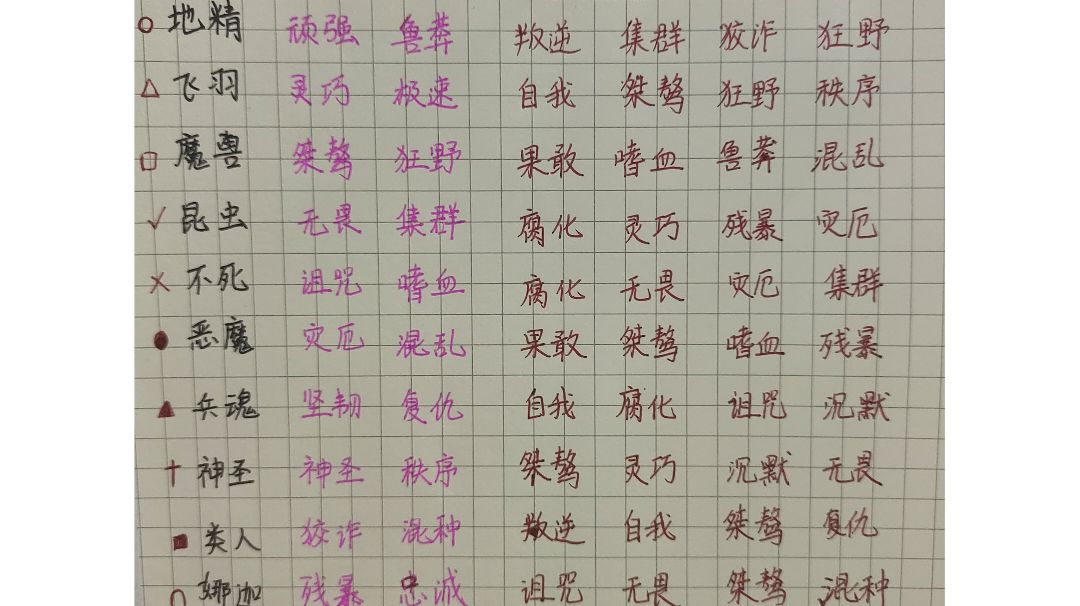 地精 顽强 鲁莽 叛逆 集群 狡诈 狂野
飞羽 灵巧 极速 自我 桀骜 狂野 秩序
魔兽 桀骜 狂野 果敢 嗜血 鲁莽 混乱
昆虫 无畏 集群 腐化 灵巧 残暴 灾厄
不死 诅咒 嗜血 腐化 无畏 灾厄 集群
恶魔 灾厄 混乱 果敢 桀骜 嗜血 残暴
兵魂 坚韧 复仇 自我 腐化 诅咒 沉默
神圣 神圣 秩序 桀骜 灵巧 沉默 无畏
类人 狡诈 混种 叛逆 自我 桀骜 复仇
娜迦 残暴 忠诚 诅咒 无畏 桀骜 混种